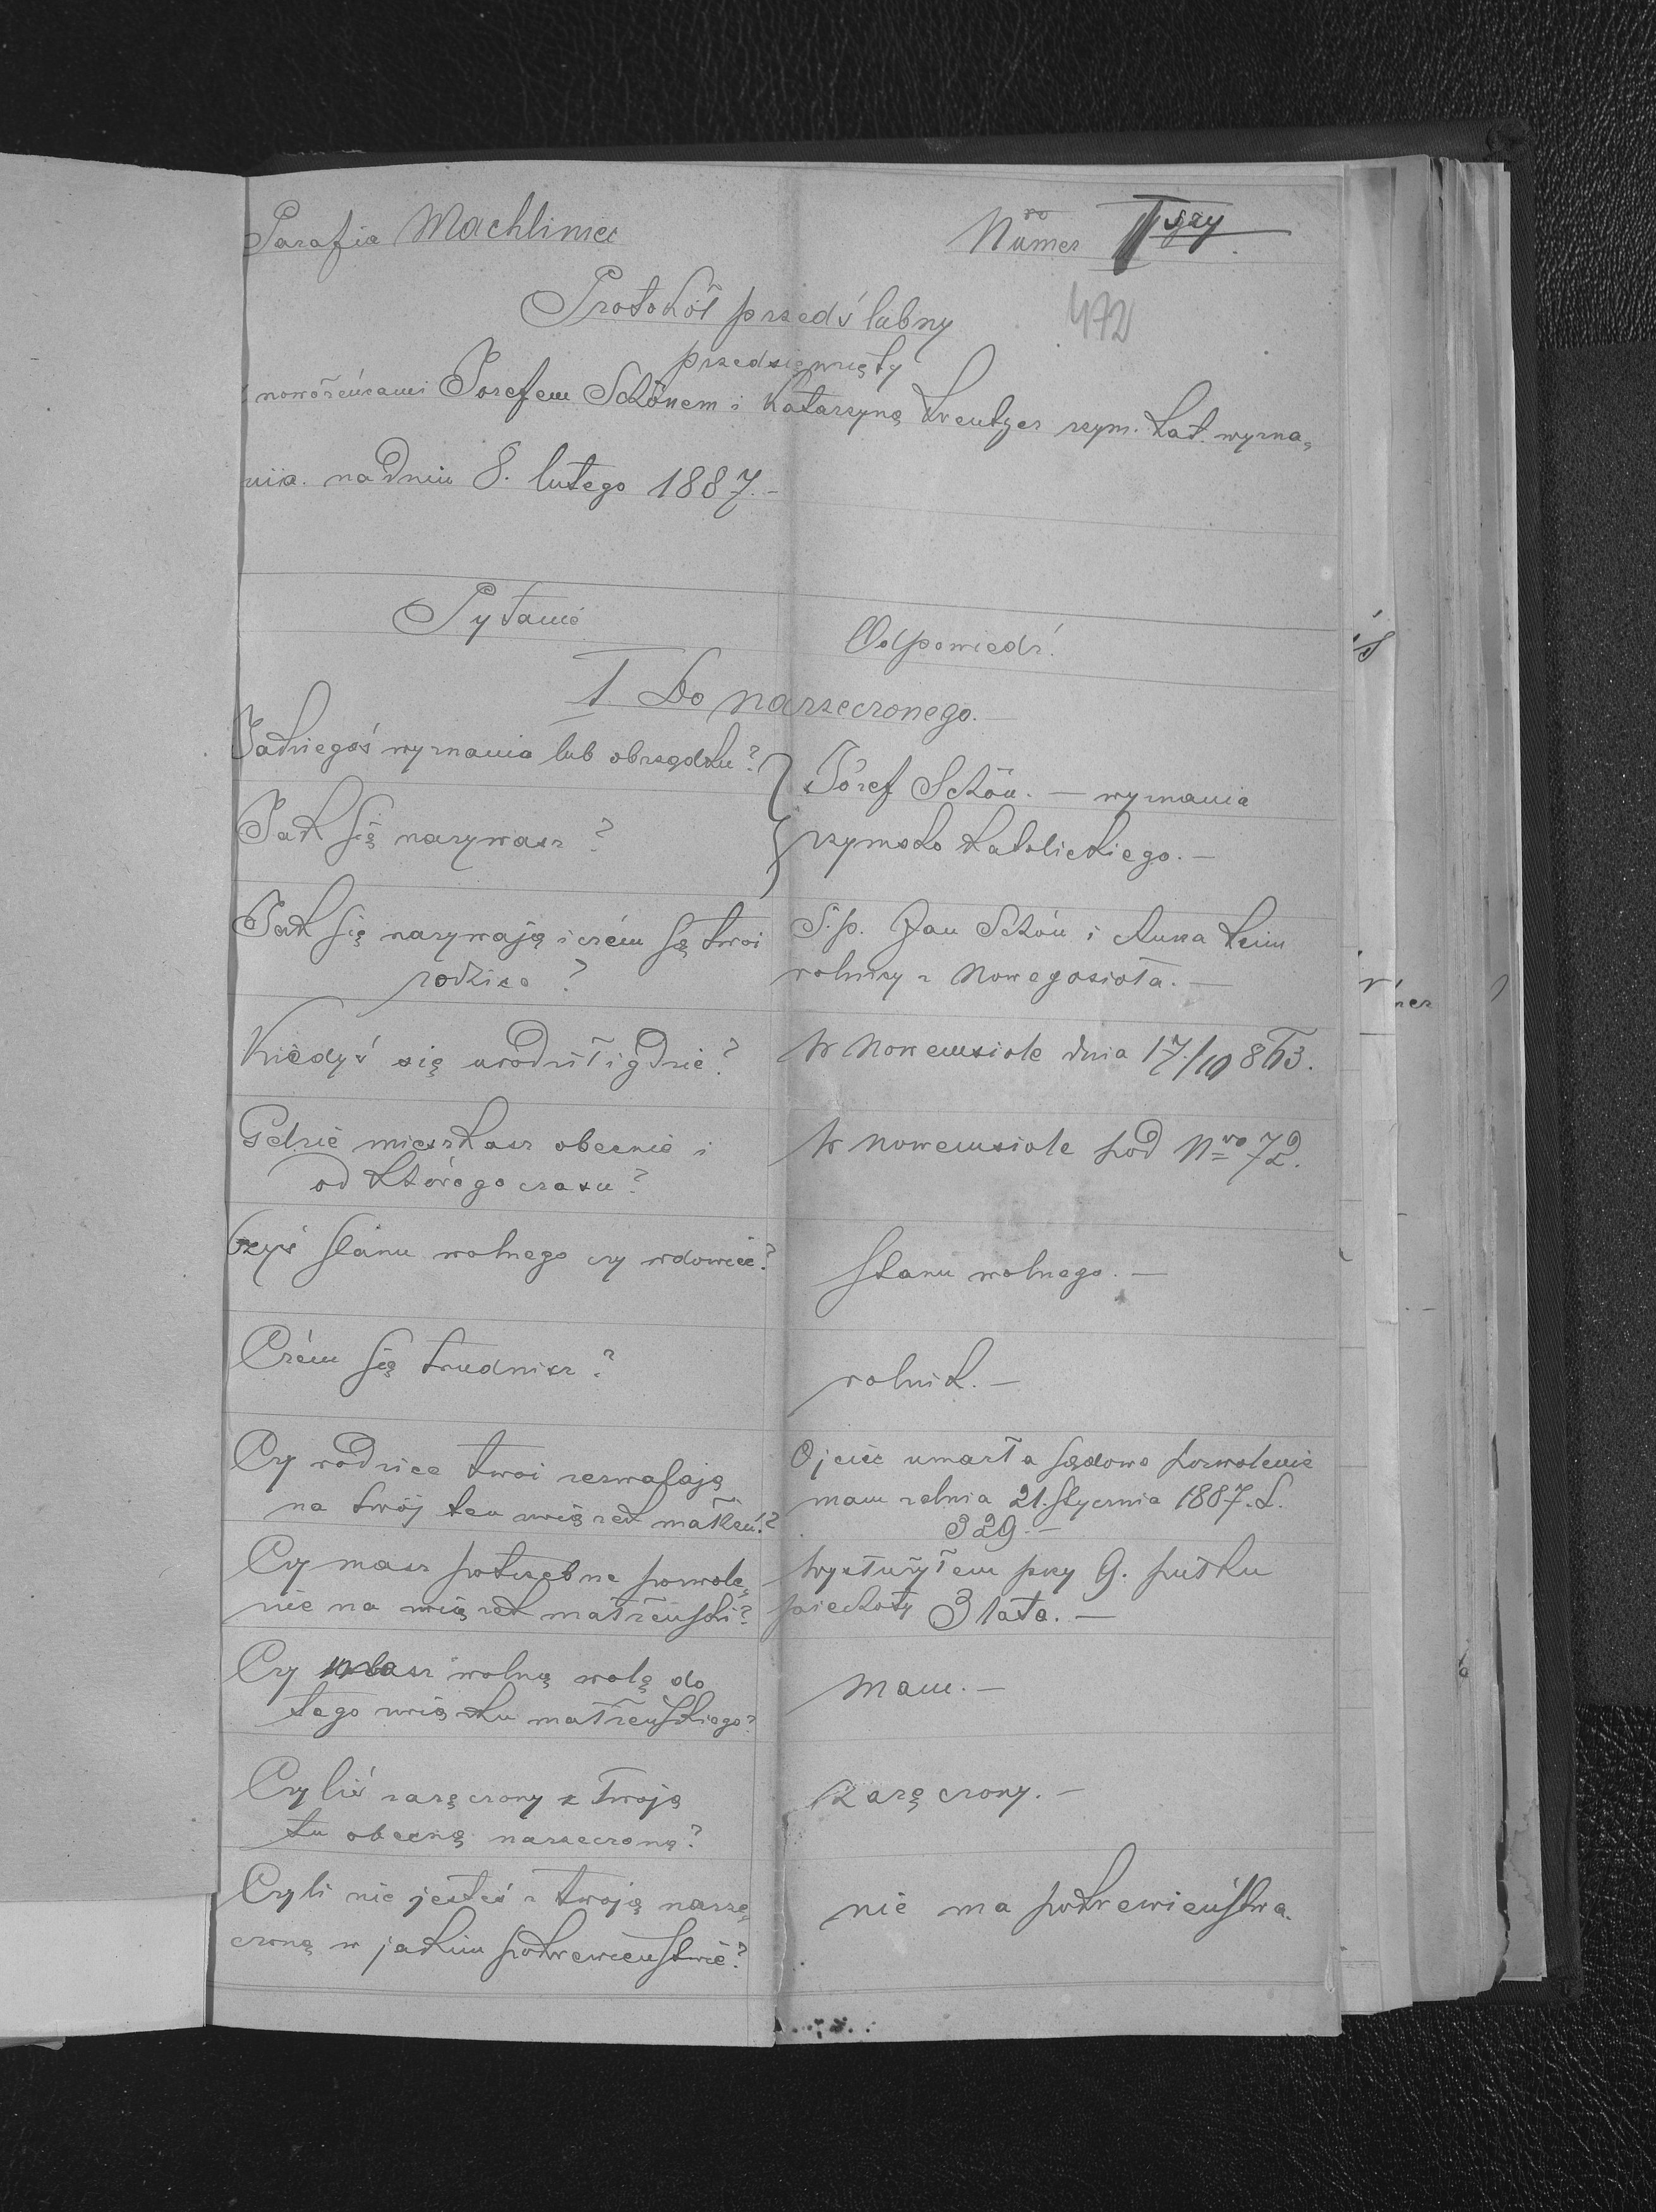 Parafia Machliniec
Numer IIgzy
Protokół przedślubny
472
przedsięwzięty
nowożeńcami Józefem Schönem i Katarzyną Kreutzer rzym. kat. wyzna„
nia. na dniu 8. lutego 1887.-
Pytanie
Odpowiedź.
I. Do narzeczonego.-
Jakiegoś wyznania lub obrządku?
Józef Schön. — wyznania
Jak się nazywasz?
rzymsko katolickiego.—
Jak się nazywają i czém są twoi
rodzice?
Ś.p. Jan Schön i Anna Keim
rolnicy z Nowegosioła.—
Kiedyś się urodził i gdzie?
W Nowemsiole dnia 17/10 863.
Gdzie mieszkasz obecnie i
od którego czasu?
W Nowemsiole pod Nro 72.
Czyś stanu wolnego czy wdowiec?
Stanu wolnego.—
Czém się trudnisz?
rolnik.—
Czy rodzice twoi zezwalają
na twój ten związek małżeń.?
Ojciec umarł a sądowe pozwolenie
mam z dnia 21. stycznia 1887. L.
329.—
Czy masz potrzebne pozwole„
nie na związek małżeński?
Wysłużyłem przy 9. pułku
piechoty 3 lata.—
Czy masz wolną wolę do
tego związku małżeńskiego?
Mam.—
Czyliś zaręczony z twoją
tu obecną narzeczoną?
Zaręczony.—
Czyli nie jesteś z twoją narze„
czoną w jakim pokrewieństwie?
nie ma pokrewieństwa.